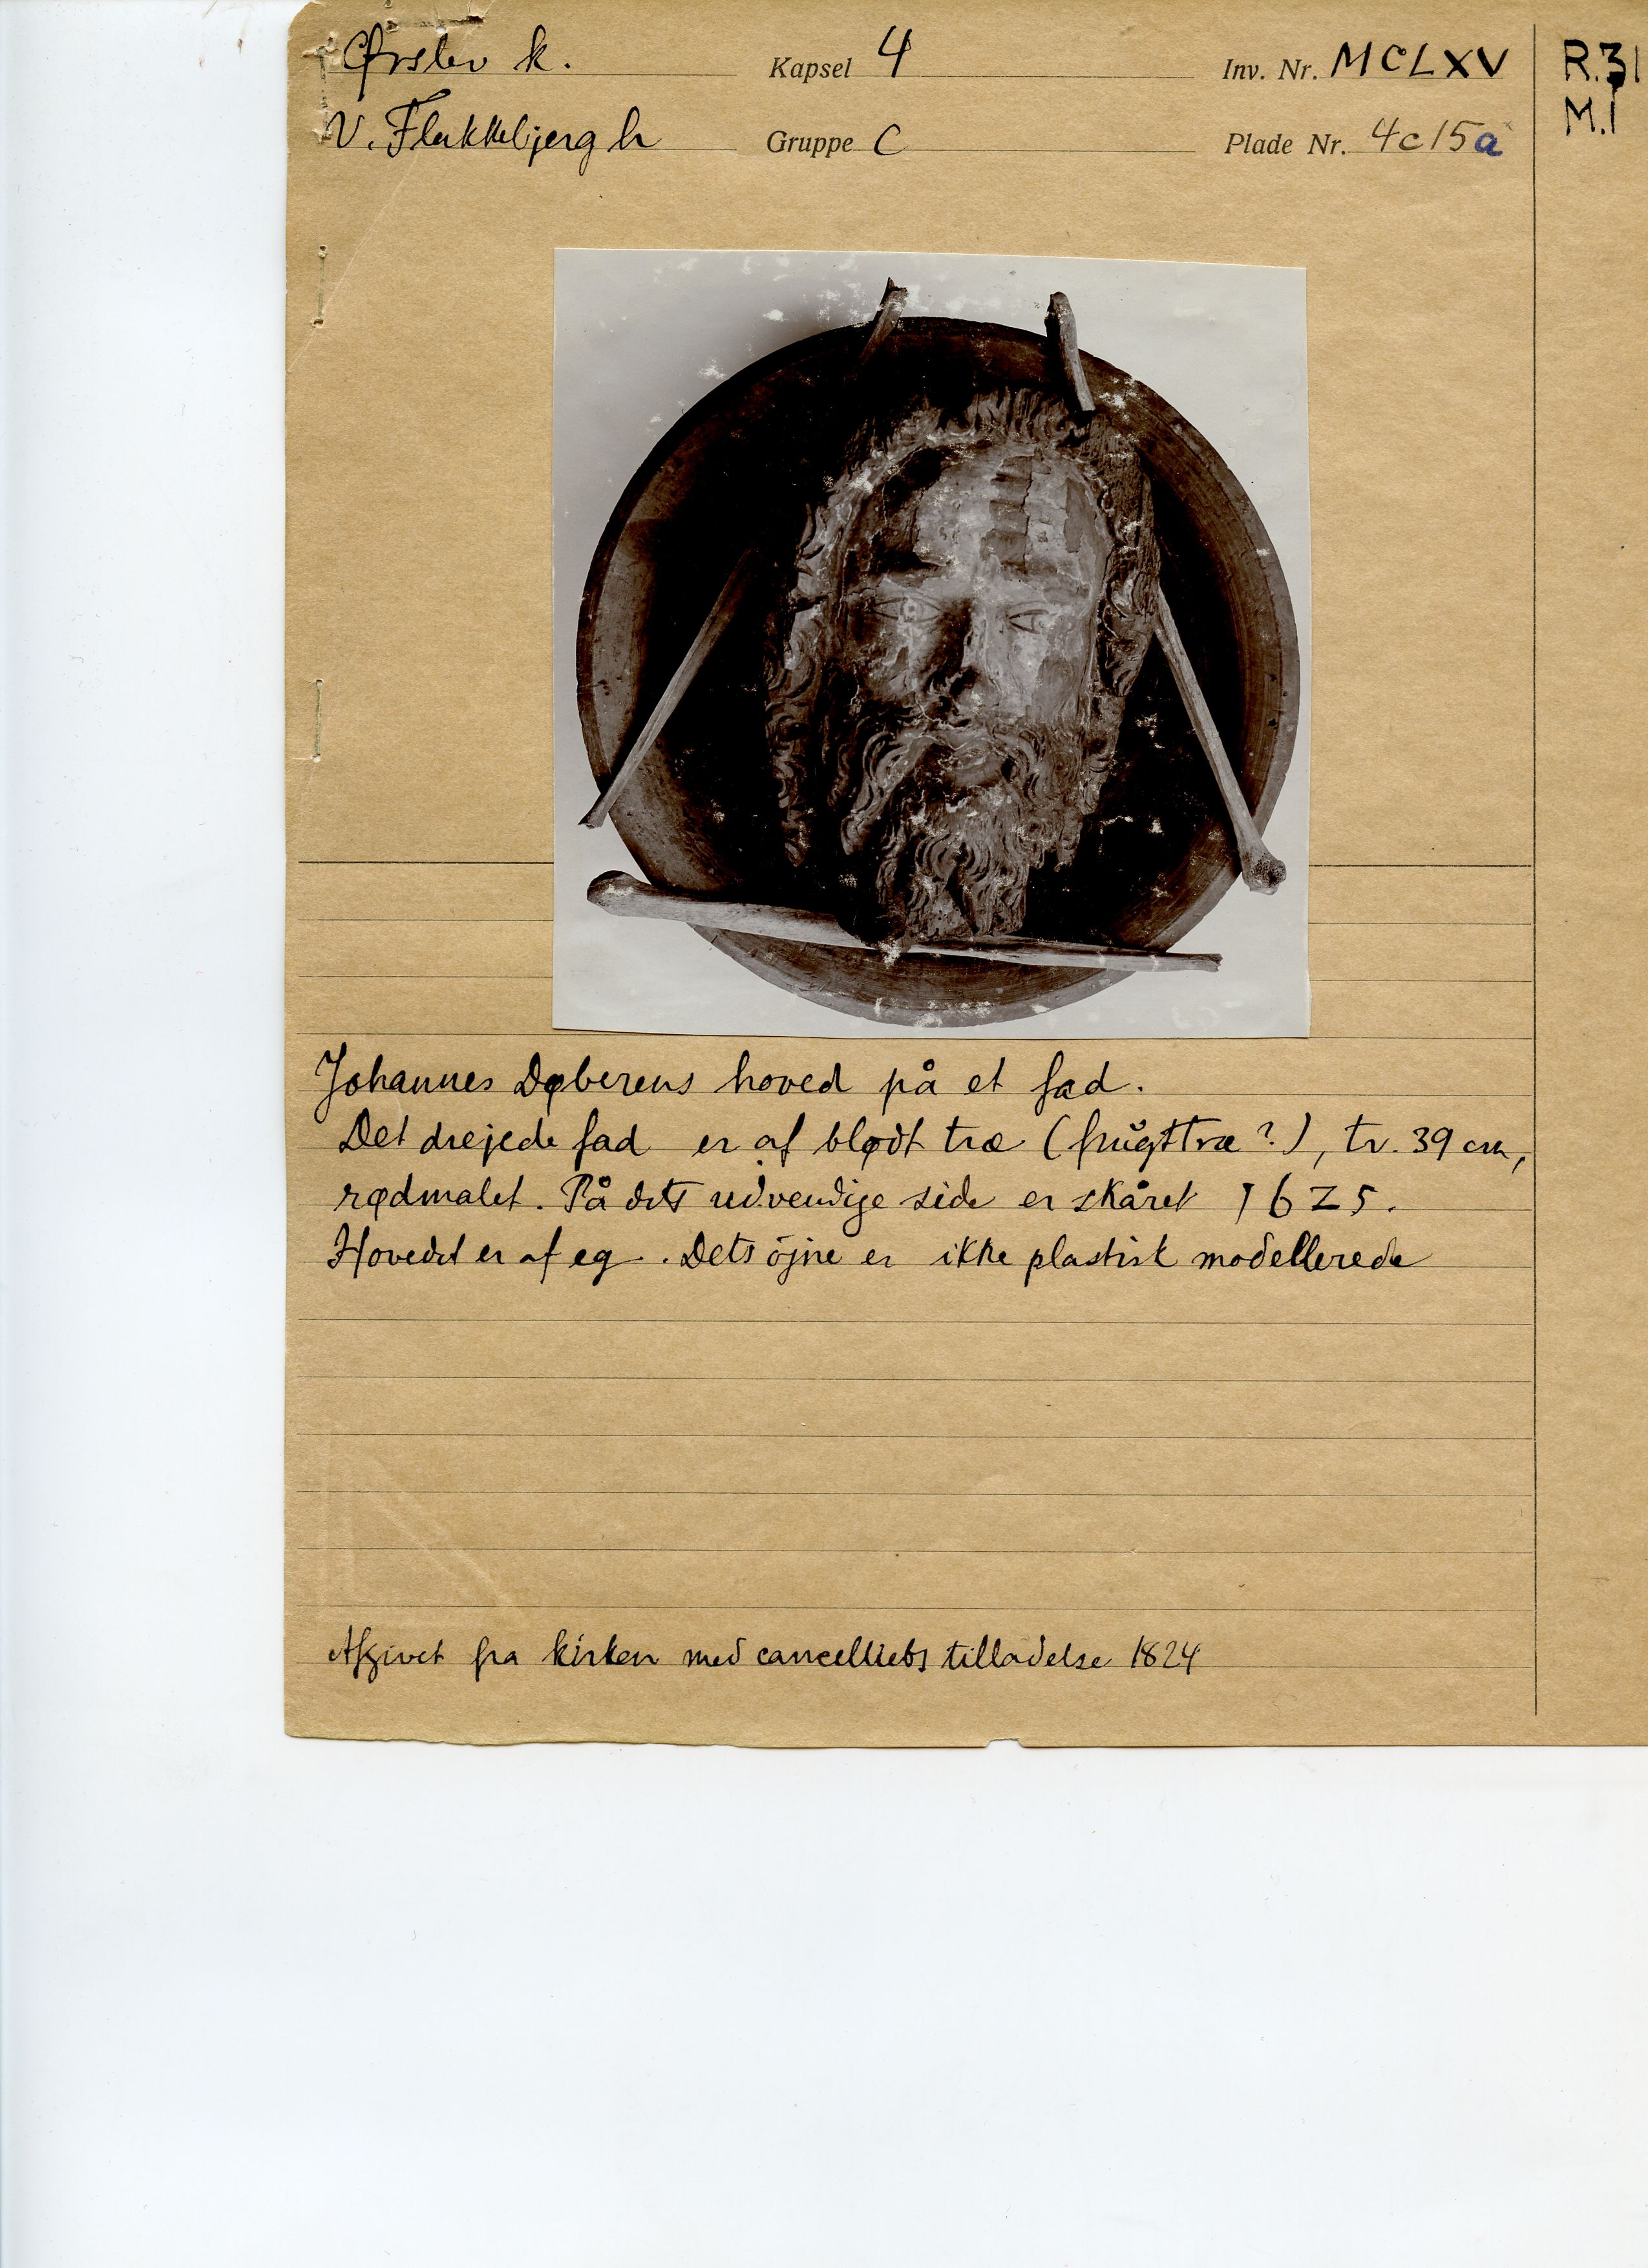 Ørslev k. Kapsel 4 Inv. Nr. MCLXV R.31
V. Flakkebjerg h Gruppe C Plade Nr. 4c15a M.1
Johannes Døberens hoved på et fad.
Det drejede fad er af blødt træ (frugttræ?), tv. 39 cm,
rødmalet. På dets udvendige side er skåret 1625.
Hovedet er af eg. Dets öjne er ikke plastisk modellerede
Afgivet fra kirken med cancelliets tilladelse 1824